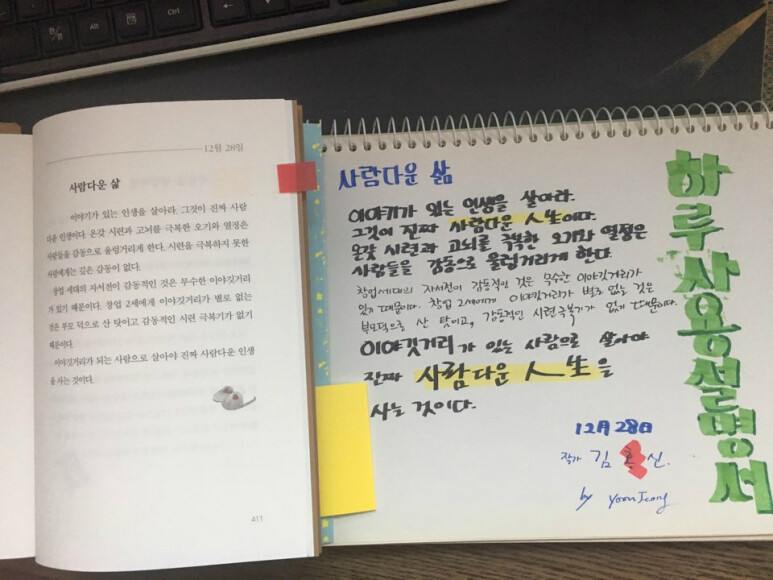 Alt
Ctrl
12월 28일
사람다운 삶
이야기가 있는 인생을 살아라. 그것이 진짜 사람
다운 인생이다. 온갖 시련과 고뇌를 극복한 오기와 열정은
사람들을 감동으로 울렁거리게 한다. 시련을 극복하지 못한
사람에게는 깊은 감동이 없다.
창업 세대의 자서전이 감동적인 것은 무수한 이야깃거리
가 있기 때문이다. 창업 2세에게 이야깃거리가 별로 없는
것은 부모 덕으로 산 탓이고 감동적인 시련 극복기가 없기
때문이다.
이야깃거리가 되는 사람으로 살아야 진짜 사람다운 인생
을 사는 것이다.
411
사람다운 삶
이야기가 있는 인생을 살아라.
그것이 진짜 사람다운 人生이다.
온갖 시련과 고뇌를 극복한 오기와 열정은
사람들을 감동으로 울렁거리게 한다.
창업세대의 자서전이 감동적인 것은 무수한 이야깃거리가
있기 때문이다. 창업 2세에게 이야깃거리가 별로 없는 것은
부모덕으로 산 탓이고, 감동적인 시련극복기가 없기 때문이다.
이야깃거리가 있는 사람으로 살아야
진짜 사람다운 人生을
사는 것이다.
12月 28日
작가 김 신.
by Yoon Jeong
하루사용설명서